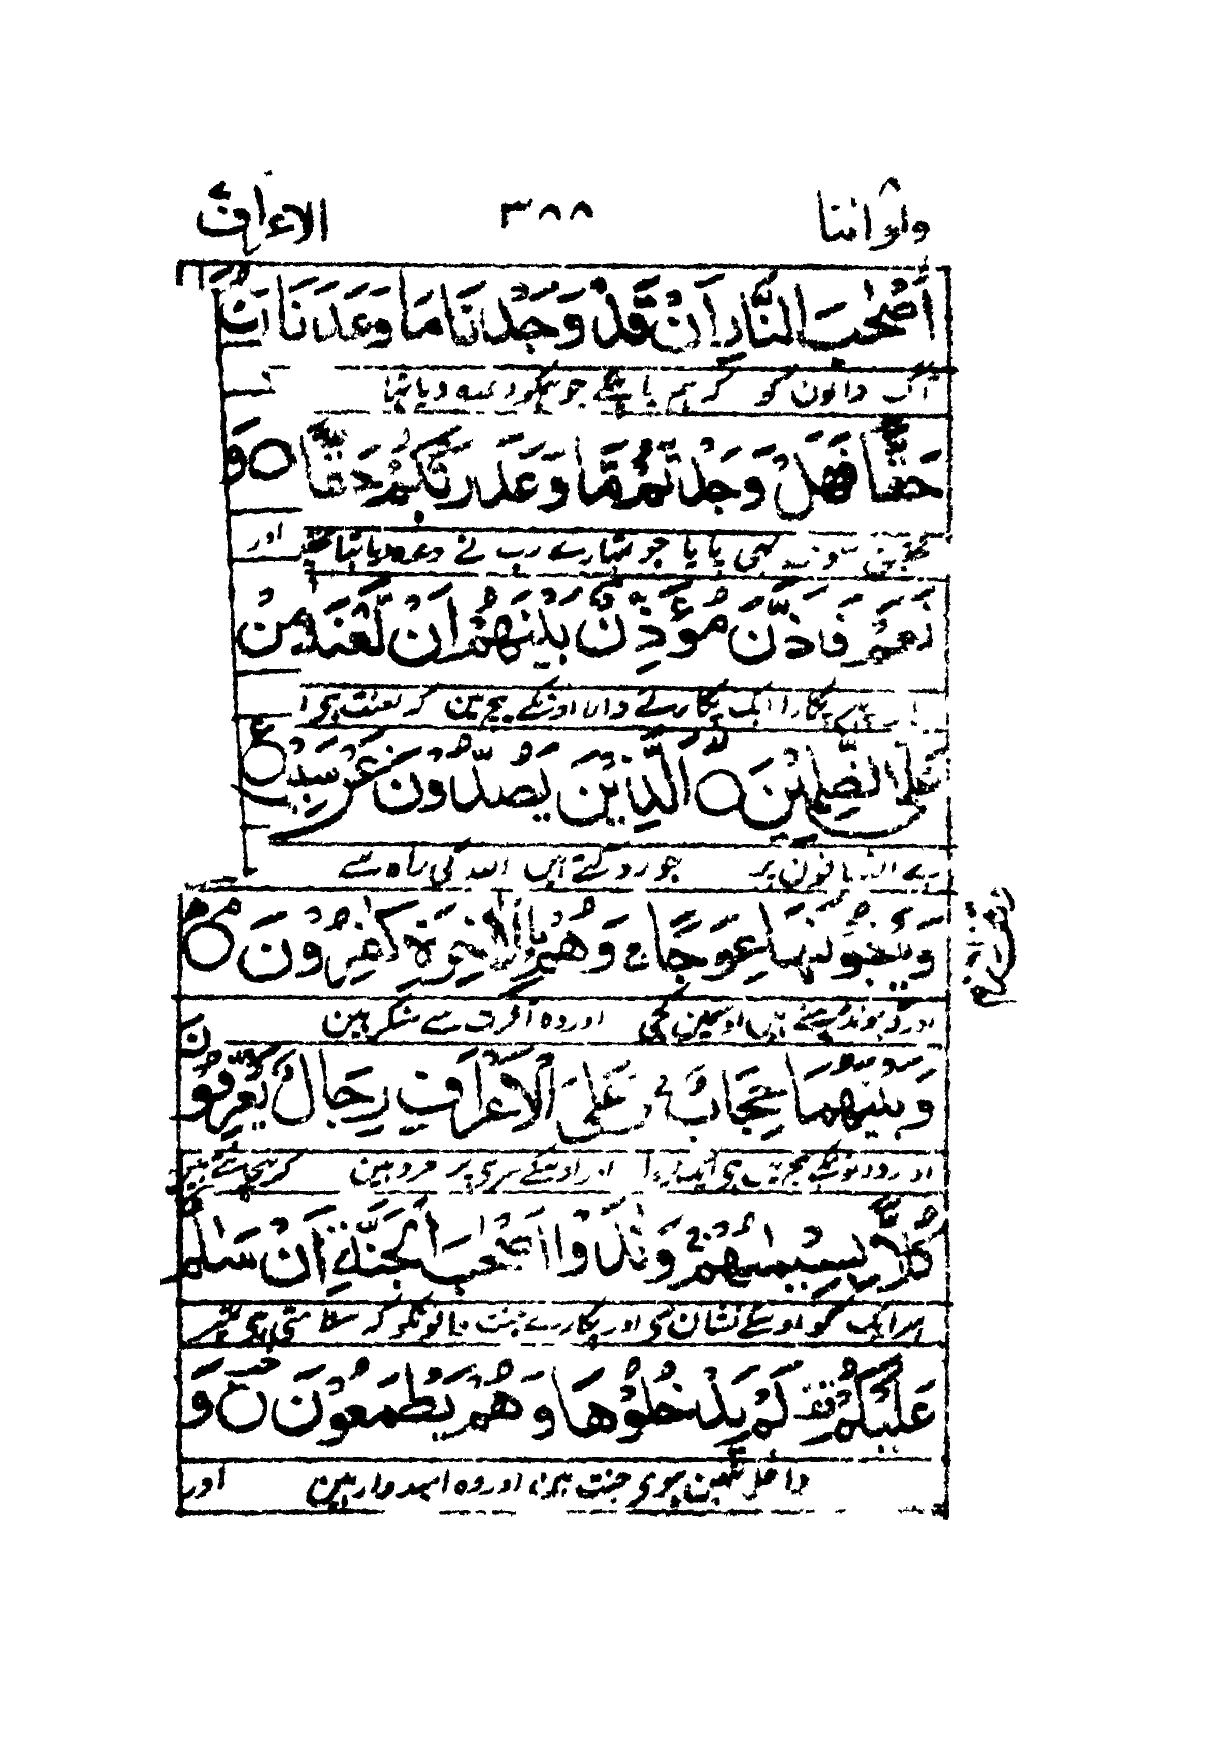 ولواننا ٨ ٣٨٨ الاعراف ٧
أَصْحٰبَ النَّارِ أَنْ قَدْ وَجَدْنَا مَا وَعَدَنَا رَبُّنَا
آگ والون کو کہ ہم پا چکے جو ہمکو وعدہ دیا تہا
حَقًّا فَهَلْ وَجَدْتُّمْ مَّا وَعَدَ رَبُّكُمْ حَقًّا ○ قَالُوْا
پایا جو تمہارے رب نے وعدہ دیا تہا اور
نَعَمْ فَاَذَّنَ مُؤَذِّنٌ بَيْنَهُمْ اَنْ لَّعْنَةُ
پکارا ایک پکارنے والا اونکے بیچ مین کہ لعنت ہی
عَلَى الظّٰلِمِيْنَ ○ الَّذِيْنَ يَصُدُّوْنَ عَنْ سَبِيْلِ
جو روکتے ہین اللہ کی راہ سے
وَيَبْغُوْنَهَا عِوَجًا ج وَهُمْ بِالْاٰخِرَةِ كٰفِرُوْنَ ○
اور ڈہونڈہتے ہین اوسمین کجی اور وہ آخرت سے منکر ہین
وَبَيْنَهُمَا حِجَابٌ ج وَعَلَى الْاَعْرَافِ رِجَالٌ يَّعْرِفُوْنَ
اور دونونکے بیچ مین ہی ایک دیوار اور اوسکے سری پر مرد ہین
كُلًّا بِسِيْمٰىهُمْ ج وَنَادَوْا اَصْحٰبَ الْجَنَّةِ اَنْ سَلٰمٌ
ہر ایک کو اوسکے نشان سی اور پکارے جنت والونکو کہ سلامتی ہی تمپر
عَلَيْكُمْ قف لَمْ يَدْخُلُوْهَا وَهُمْ يَطْمَعُوْنَ ○ وَ
داخل نہین ہوی جنت مین اور وہ امیدوار ہین اور